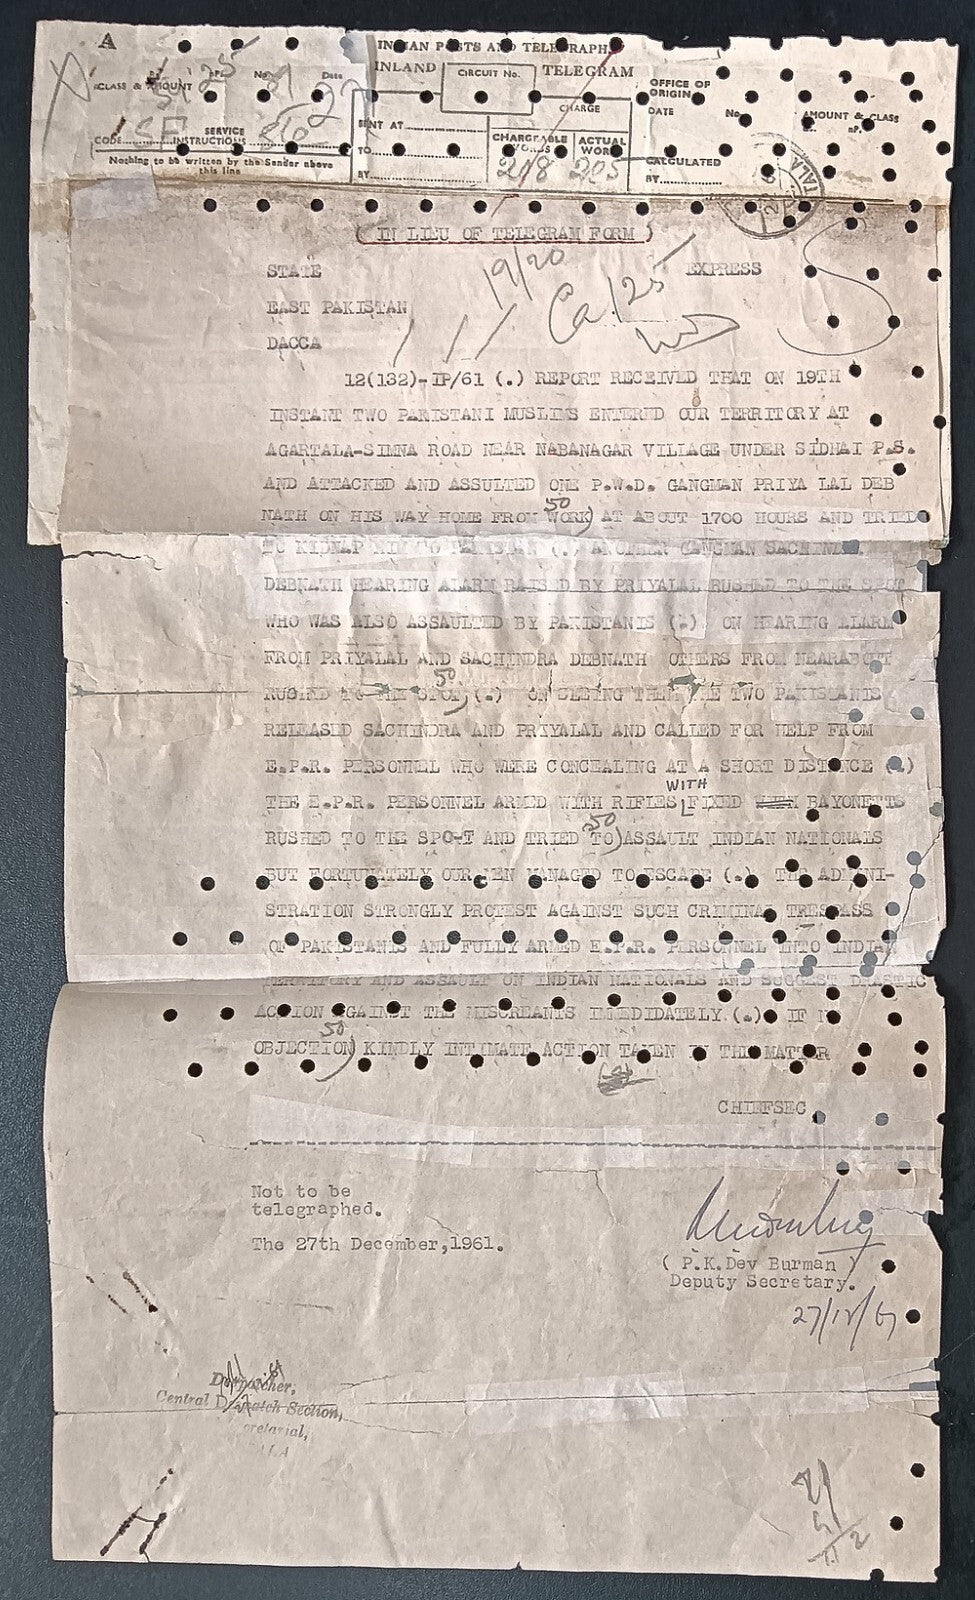 A
INDIAN POSTS AND TELEGRAPHS
INLAND CIRCUIT No. TELEGRAM
CLASS & AMOUNT No. Date
CHARGE
OFFICE OF
ORIGIN
DATE No. AMOUNT & CLASS
nP.
CODE SERVICE
INSTRUCTIONS
SENT AT
TO
BY
CHARGEABLE
WORDS
ACTUAL
WORDS
218 205
CALCULATED
BY
Nothing to be written by the Sender above
this line
(IN LIEU OF TELEGRAM FORM)
19/20
STATE EXPRESS
Ca/25
EAST PAKISTAN
DACCA
12(132)-IP/61 (.) REPORT RECEIVED THAT ON 19TH
INSTANT TWO PAKISTANI MUSLIMS ENTERED OUR TERRITORY AT
AGARTALA-SIMNA ROAD NEAR NABANAGAR VILLAGE UNDER SIDHAI P.S.
AND ATTACKED AND ASSULTED ONE P.W.D. GANGMAN PRIYA LAL DEB
50
NATH ON HIS WAY HOME FROM WORK) AT ABOUT 1700 HOURS AND TRIED
TO KIDNAP HIM TO PAKISTAN (.) ANOTHER GANGMAN SACHINDRA
DEBNATH HEARING ALARM RAISED BY PRIYALAL RUSHED TO THE SPOT
WHO WAS ALSO ASSAULTED BY PAKISTANIS (.) ON HEARING ALARM
FROM PRIYALAL AND SACHINDRA DEBNATH OTHERS FROM NEARABOUT
50
RUSHED TO THE SPOT) (.) ON SEEING THEM THE TWO PAKISTANIS
RELEASED SACHINDRA AND PRIYALAL AND CALLED FOR HELP FROM
E.P.R. PERSONNEL WHO WERE CONCEALING AT A SHORT DISTANCE (.)
WITH
THE E.P.R. PERSONNEL ARMED WITH RIFLES FIXED BAYONETTS
50
RUSHED TO THE SPO-T AND TRIED TO) ASSAULT INDIAN NATIONALS
BUT FORTUNATELY OUR MEN MANAGED TO ESCAPE (.) THE ADMINI-
STRATION STRONGLY PROTEST AGAINST SUCH CRIMINAL TRESPASS
OF PAKISTANIS AND FULLY ARMED E.P.R. PERSONNEL INTO INDIAN
TERRITORY AND ASSAULT ON INDIAN NATIONALS AND SUGGEST DRASTIC
ACTION AGAINST THE MISCREANTS IMMIDIATELY (.) IF NO
50
OBJECTION) KINDLY INTIMATE ACTION TAKEN IN THE MATTER
CHIEFSEC.
Not to be
telegraphed.
The 27th December,1961.
( P.K.Dev Burman )
Deputy Secretary.
27/12/61
Despatcher,
Central Despatch Section,